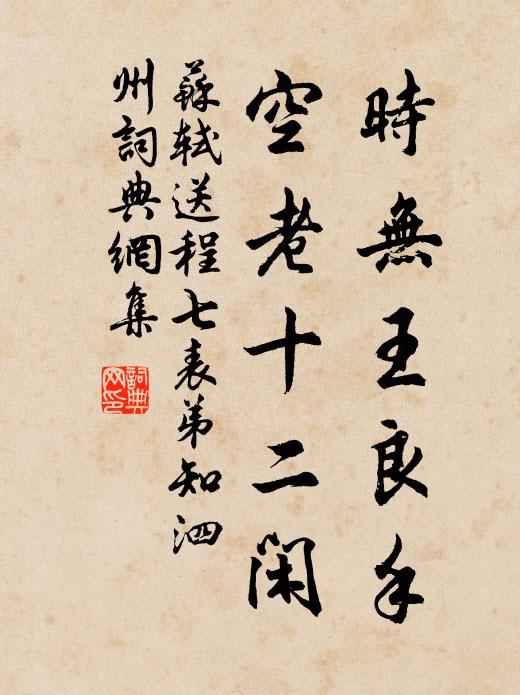 時無王良手
空老十二閑
蘇軾送程七表弟知泗
州詞典網集
詞典网印